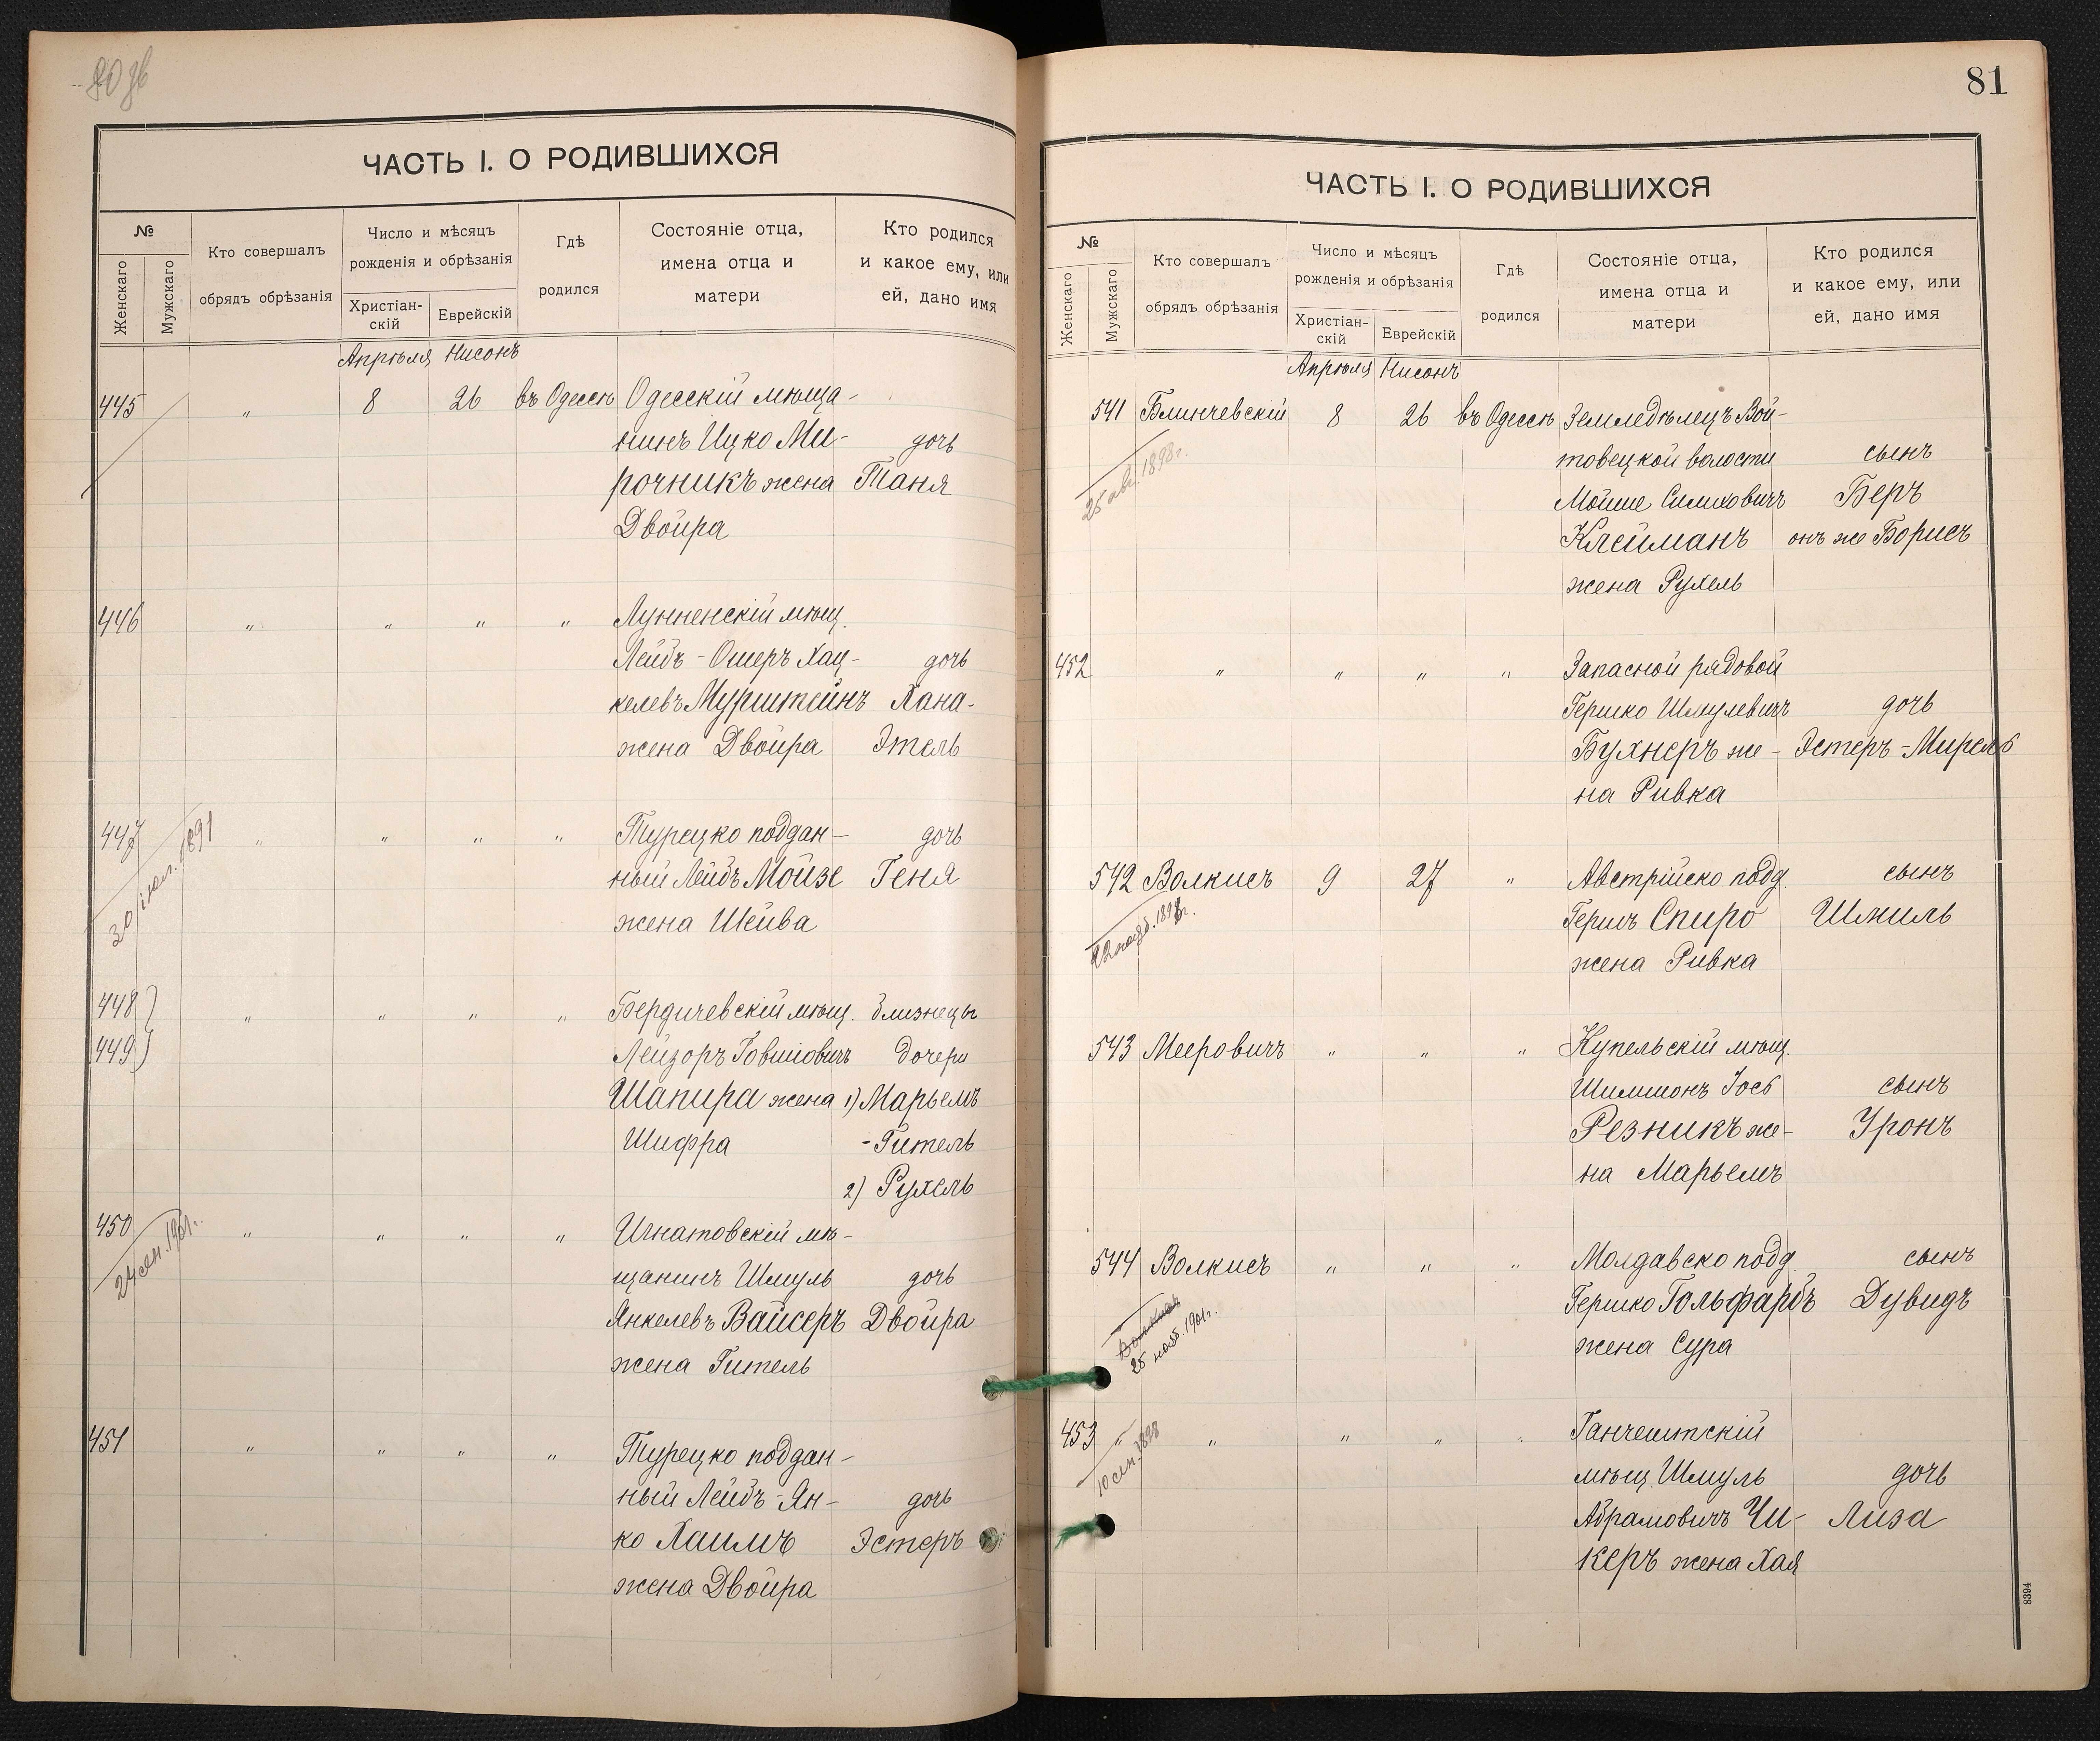 80 зв
ЧАСТЬ I. О РОДИВШИХСЯ
№
Женскаго
Мужскаго
Кто совершалъ
обрядъ обрѣзанія
Число и мѣсяцъ
рожденія и обрѣзанія
Христіан-
скій
Еврейскій
Гдѣ
родился
Состояніе отца,
имена отца и
матери
Кто родился
и какое ему, или
ей, дано имя
Апрѣля Нисонъ
445 " 8 26 въ Одессѣ Одесскій мѣща-
нинъ Ицко Ми- дочь
рочникъ жена Таня
Двойра
446 " " " " Лунненскій мѣщ.
Лейбъ-Ошеръ Хац- дочь
келевъ Мурштейнъ Хана-
жена Двойра Этель
447 " " " " Турецко поддан- дочь
30 іюл. 1891
ный Лейбъ Мойзе Геня
жена Шейва
448 " " " " Бердичевскій мѣщ. близнецы
449 Лейзоръ Говшіовичъ дочери
Шапира жена 1) Марьемъ
Шифра -Гитель
2) Рухель
450 " " " " Игнатовскій мѣ-
24 сен. 1901г.
щанинъ Шмуль дочь
Янкелевъ Вайсеръ Двойра
жена Гитель
451 " " " " Турецко поддан-
ный Лейбъ-Ян- дочь
ко Хаимъ Эстеръ
жена Двойра
81
ЧАСТЬ I. О РОДИВШИХСЯ
№
Женскаго
Мужскаго
Кто совершалъ
обрядъ обрѣзанія
Число и мѣсяцъ
рожденія и обрѣзанія
Христіан-
скій
Еврейскій
Гдѣ
родился
Состояніе отца,
имена отца и
матери
Кто родился
и какое ему, или
ей, дано имя
Апрѣля Нисонъ
541 Блинчевскій 8 26 въ Одессѣ Земледѣлецъ Вой-
25 авг. 1898г.
товецкой волости сынъ
Мойше Симховичъ Беръ
Клейманъ онъ же Борисъ
жена Рухель
452 " " " " Запасной рядовой
Гершко Шмулевичъ дочь
Бухнеръ же- Эстеръ-Мирель
на Ривка
542 Волкисъ 9 27 " Австрійско подд. сынъ
Гершъ Спиро Шмиль
жена Ривка
543 Мееровичъ " " " Купельскій мѣщ.
Шимшонъ Іось сынъ
Резникъ же- Уронъ
на Марьемъ
544 Волкисъ " " " Молдавско подд. сынъ
25 нояб. 1901г.
Гершко Гольфарбъ Дувидъ
жена Сура
453 " " " " " Ганчештскій
10 сен. 1898
мѣщ. Шмуль дочь
Абрамовичъ Чи- Лиза
керъ жена Хая
8394